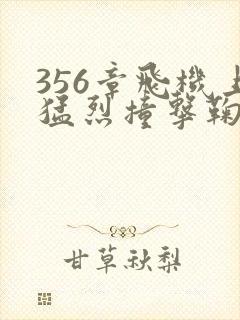 356章飛機上
猛烈撞撃鞠
甘草秋梨